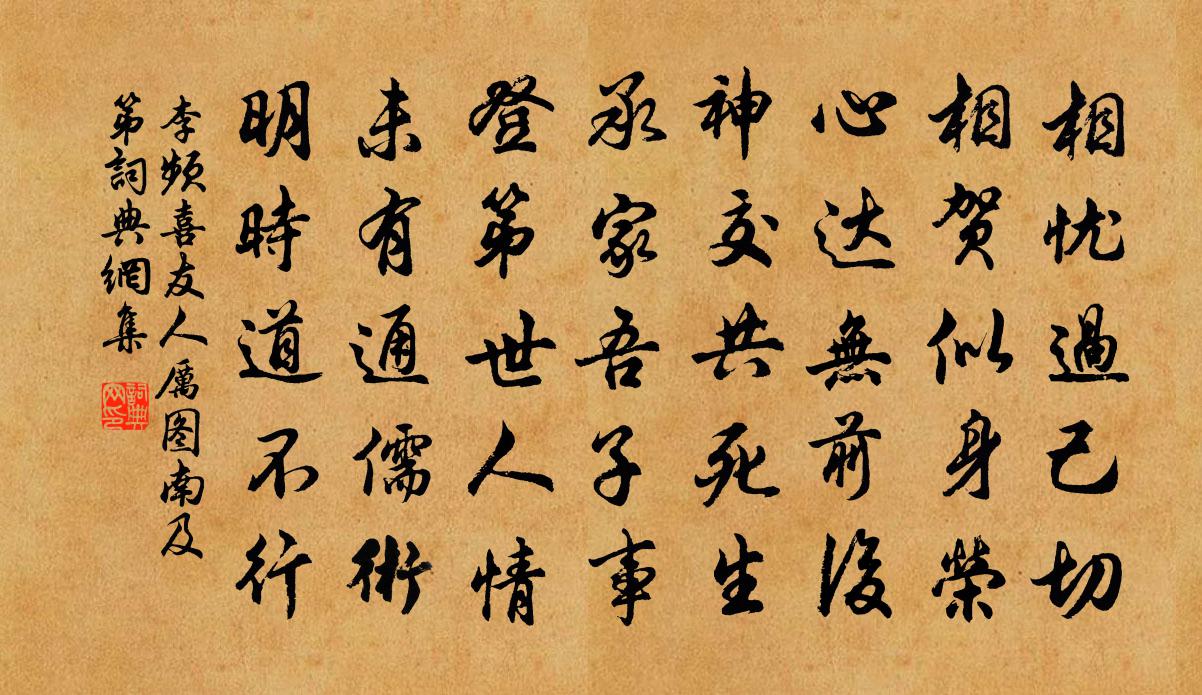 相忧過己切
相贺似身榮
心达無前後
神交共死生
承家吾子事
登第世人情
未有通儒術
明時道不行
李频喜友人厲图南及
第詞典網集
詞典
网印